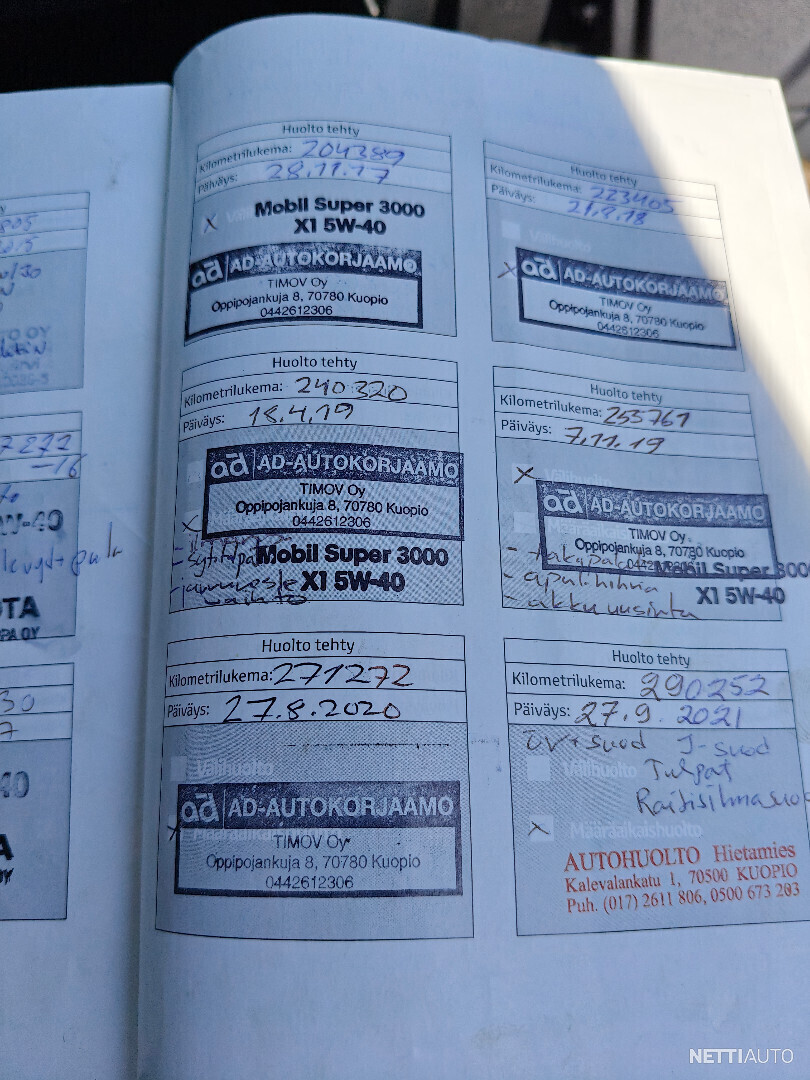 7272
-16
W-40
TA
PA OY
30
7
40
A
OY
Huolto tehty
Kilometrilukema: 204389
Päiväys: 28.11.17
X
Mobil Super 3000
X1 5W-40
ad AD-AUTOKORJAAMO
TIMOV Oy
Oppipojankuja 8, 70780 Kuopio
0442612306
Huolto tehty
Kilometrilukema: 223405
Päiväys: 21.8.18
Välihuolto
X
ad AD-AUTOKORJAAMO
TIMOV Oy
Oppipojankuja 8, 70780 Kuopio
0442612306
Huolto tehty
Kilometrilukema: 240320
Päiväys: 18.4.19
ad AD-AUTOKORJAAMO
TIMOV Oy
Oppipojankuja 8, 70780 Kuopio
0442612306
X
Mobil Super 3000
X1 5W-40
Huolto tehty
Kilometrilukema: 253761
Päiväys: 7.11.19
X Välihuolto
ad AD-AUTOKORJAAMO
TIMOV Oy
Oppipojankuja 8, 70780 Kuopio
0442612306
Mobil Super 300
X1 5W-40
- apulihihna
- akku uusinta
Huolto tehty
Kilometrilukema: 271272
Päiväys: 27.8.2020
Välihuolto
ad AD-AUTOKORJAAMO
X
TIMOV Oy
Oppipojankuja 8, 70780 Kuopio
0442612306
Huolto tehty
Kilometrilukema: 290252
Päiväys: 27.9.2021
öv+suod I-suod
Välihuolto
Tulpat
Raitisilmasuo
X Määräaikaishuolto
AUTOHUOLTO Hietamies
Kalevalankatu 1, 70500 KUOPIO
Puh. (017) 2611 806, 0500 673 203
NETTIAUTO